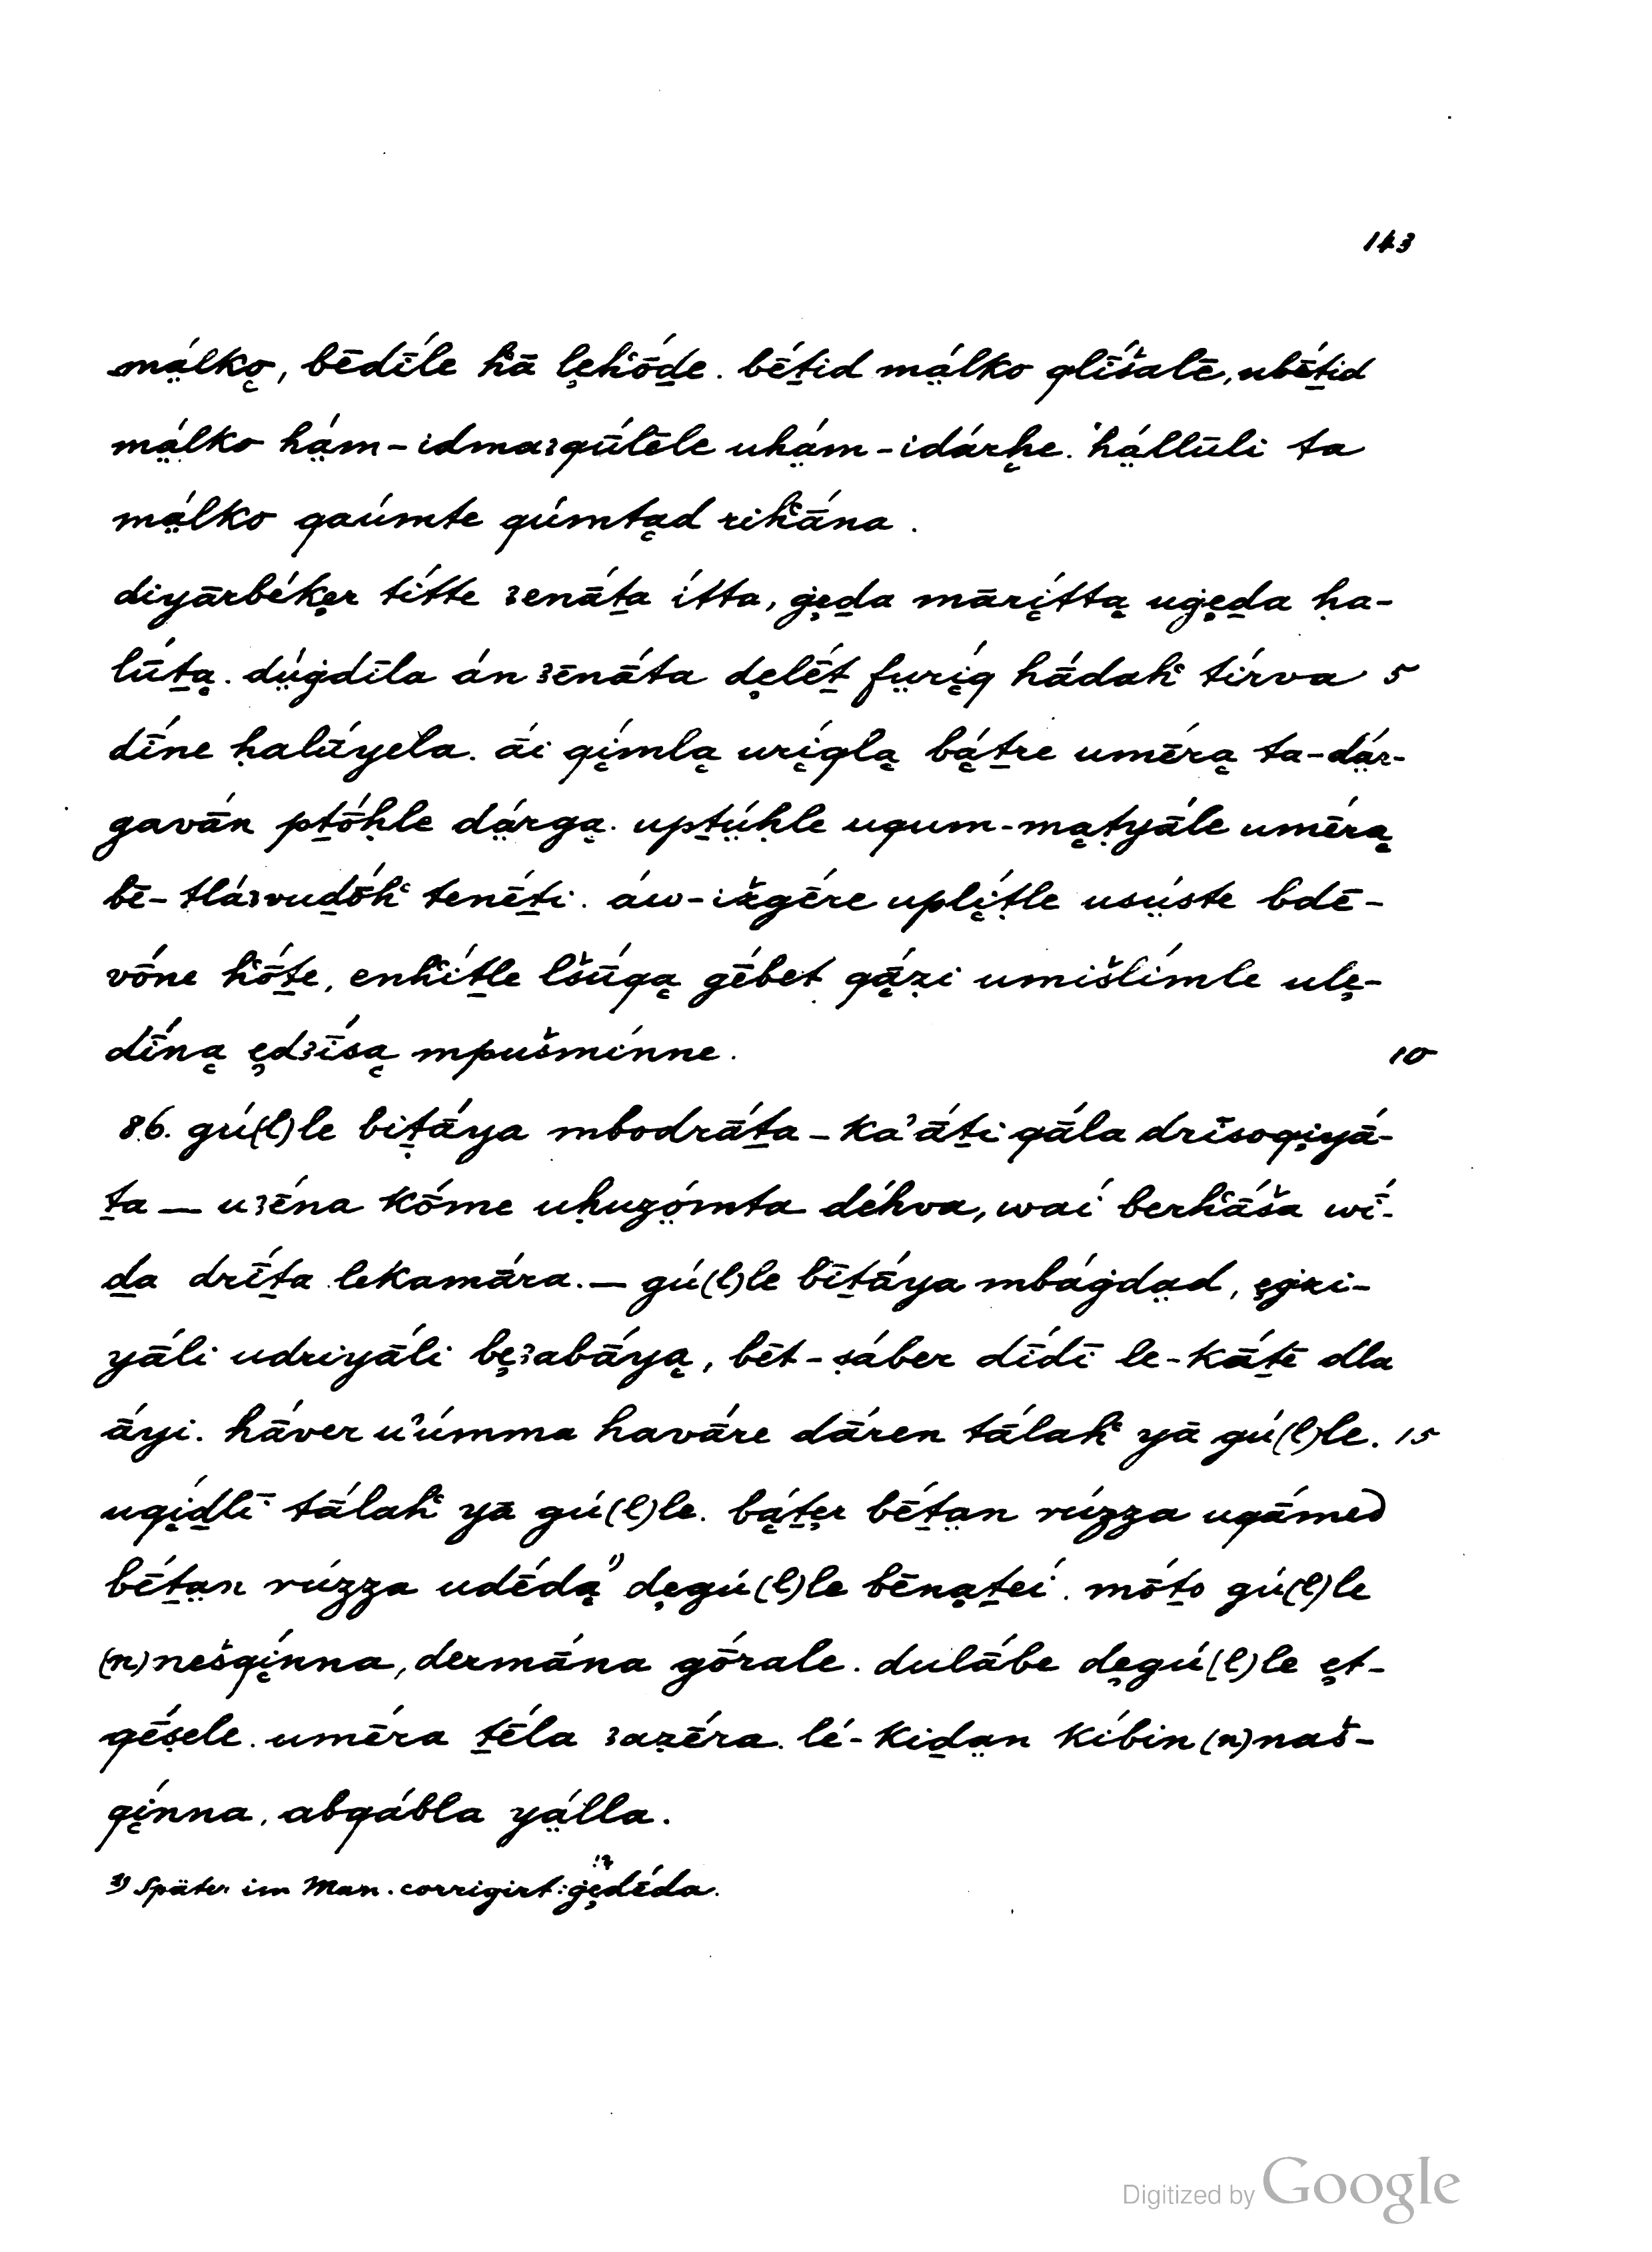 143
mä́lkǫ, bēdī́le h̑ā lęh̑ṓḏe. bḗṯid mä́lko qlī́šalē, ubḗṯid
mä́lko hä́m-idmaꜣqū́lēle uhä́m-idárḥe. hä́llūli ta
mä́lko qaúmte qúmtąd rih̑ā́na.
diyārbékęr títte ꜣenā́ṯa ítta, ġęḏa mārį́ttą uġęḏa ḥa-
lū́ṯą. dǘġdīla án ꜣēnā́ta dęlḗṯ fürį́q hā́dah̑ tírva 5
dī́ne ḥalū́yela. āí qį́mlą urį́qlą bą́ṯre umḗrą ta-dä́r-
gavā́n pṯṓḥle dä́rgą. upṯǘḥle uqum-mąṭyā́le umḗrą
bē-tláꜣvuḏṓh̑ tenḗṯi. áw-ižgḗre uplį́ṭle usǘste bdē-
vṓne h̑ṓṯe, enh̑íṯle lšū́qą gḗbet qą́̄ẓi umišlímle ulę-
dī́ną ędꜣī́są mpušmínne. 10
86. gú(l)le biṭā́ya mbodrā́ṯa - kaʾā́ṯi qā́la drīsoqįyā́-
ṯa — uꜣḗna kṓme uḥuzö́mta déhva, waí berh̑ā́ša wī́-
ḏa drī́ṯa lekamā́ra. — gú(l)le bīṯā́ya mbáġdäd, ęġzi-
yā́li udriyā́li bęꜣabā́yą, bēt-ṣáber dī́dī le-kā́ṯē dla
ā́yi. hā́ver uʾúmma havā́re dā́ren tā́lah̑ yā gú(l)le. 15
uqį́ḏlī tā́lah̑ yā gú(l)le. bą́ṯęr bḗṯän rúzza uqā́med
bḗṯän rúzza udḗdą¹) dęgú(l)le bēnąṯeí. mṓṯo gú(l)le
(n)nešqį́nna, dermā́na gṓrale. dulā́be dęgú(l)le ęt-
qḗṣele. umḗra ṯēla ꜣaẓḗra. lé-kiḏän kíbin (n)naš-
qį́nna, abqábla yä́lla.
¹) Später im Man. corrigirt: ġędḗda.
Digitized by Google